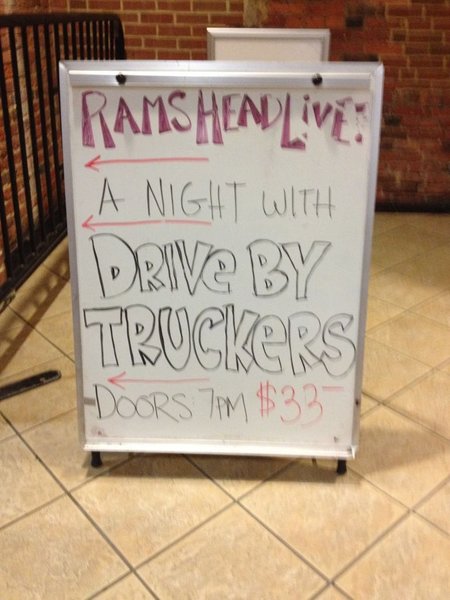 RAMS HEAD LIVE!
A NIGHT WITH
DRIVE BY
TRUCKERS
DOORS: 7PM $33